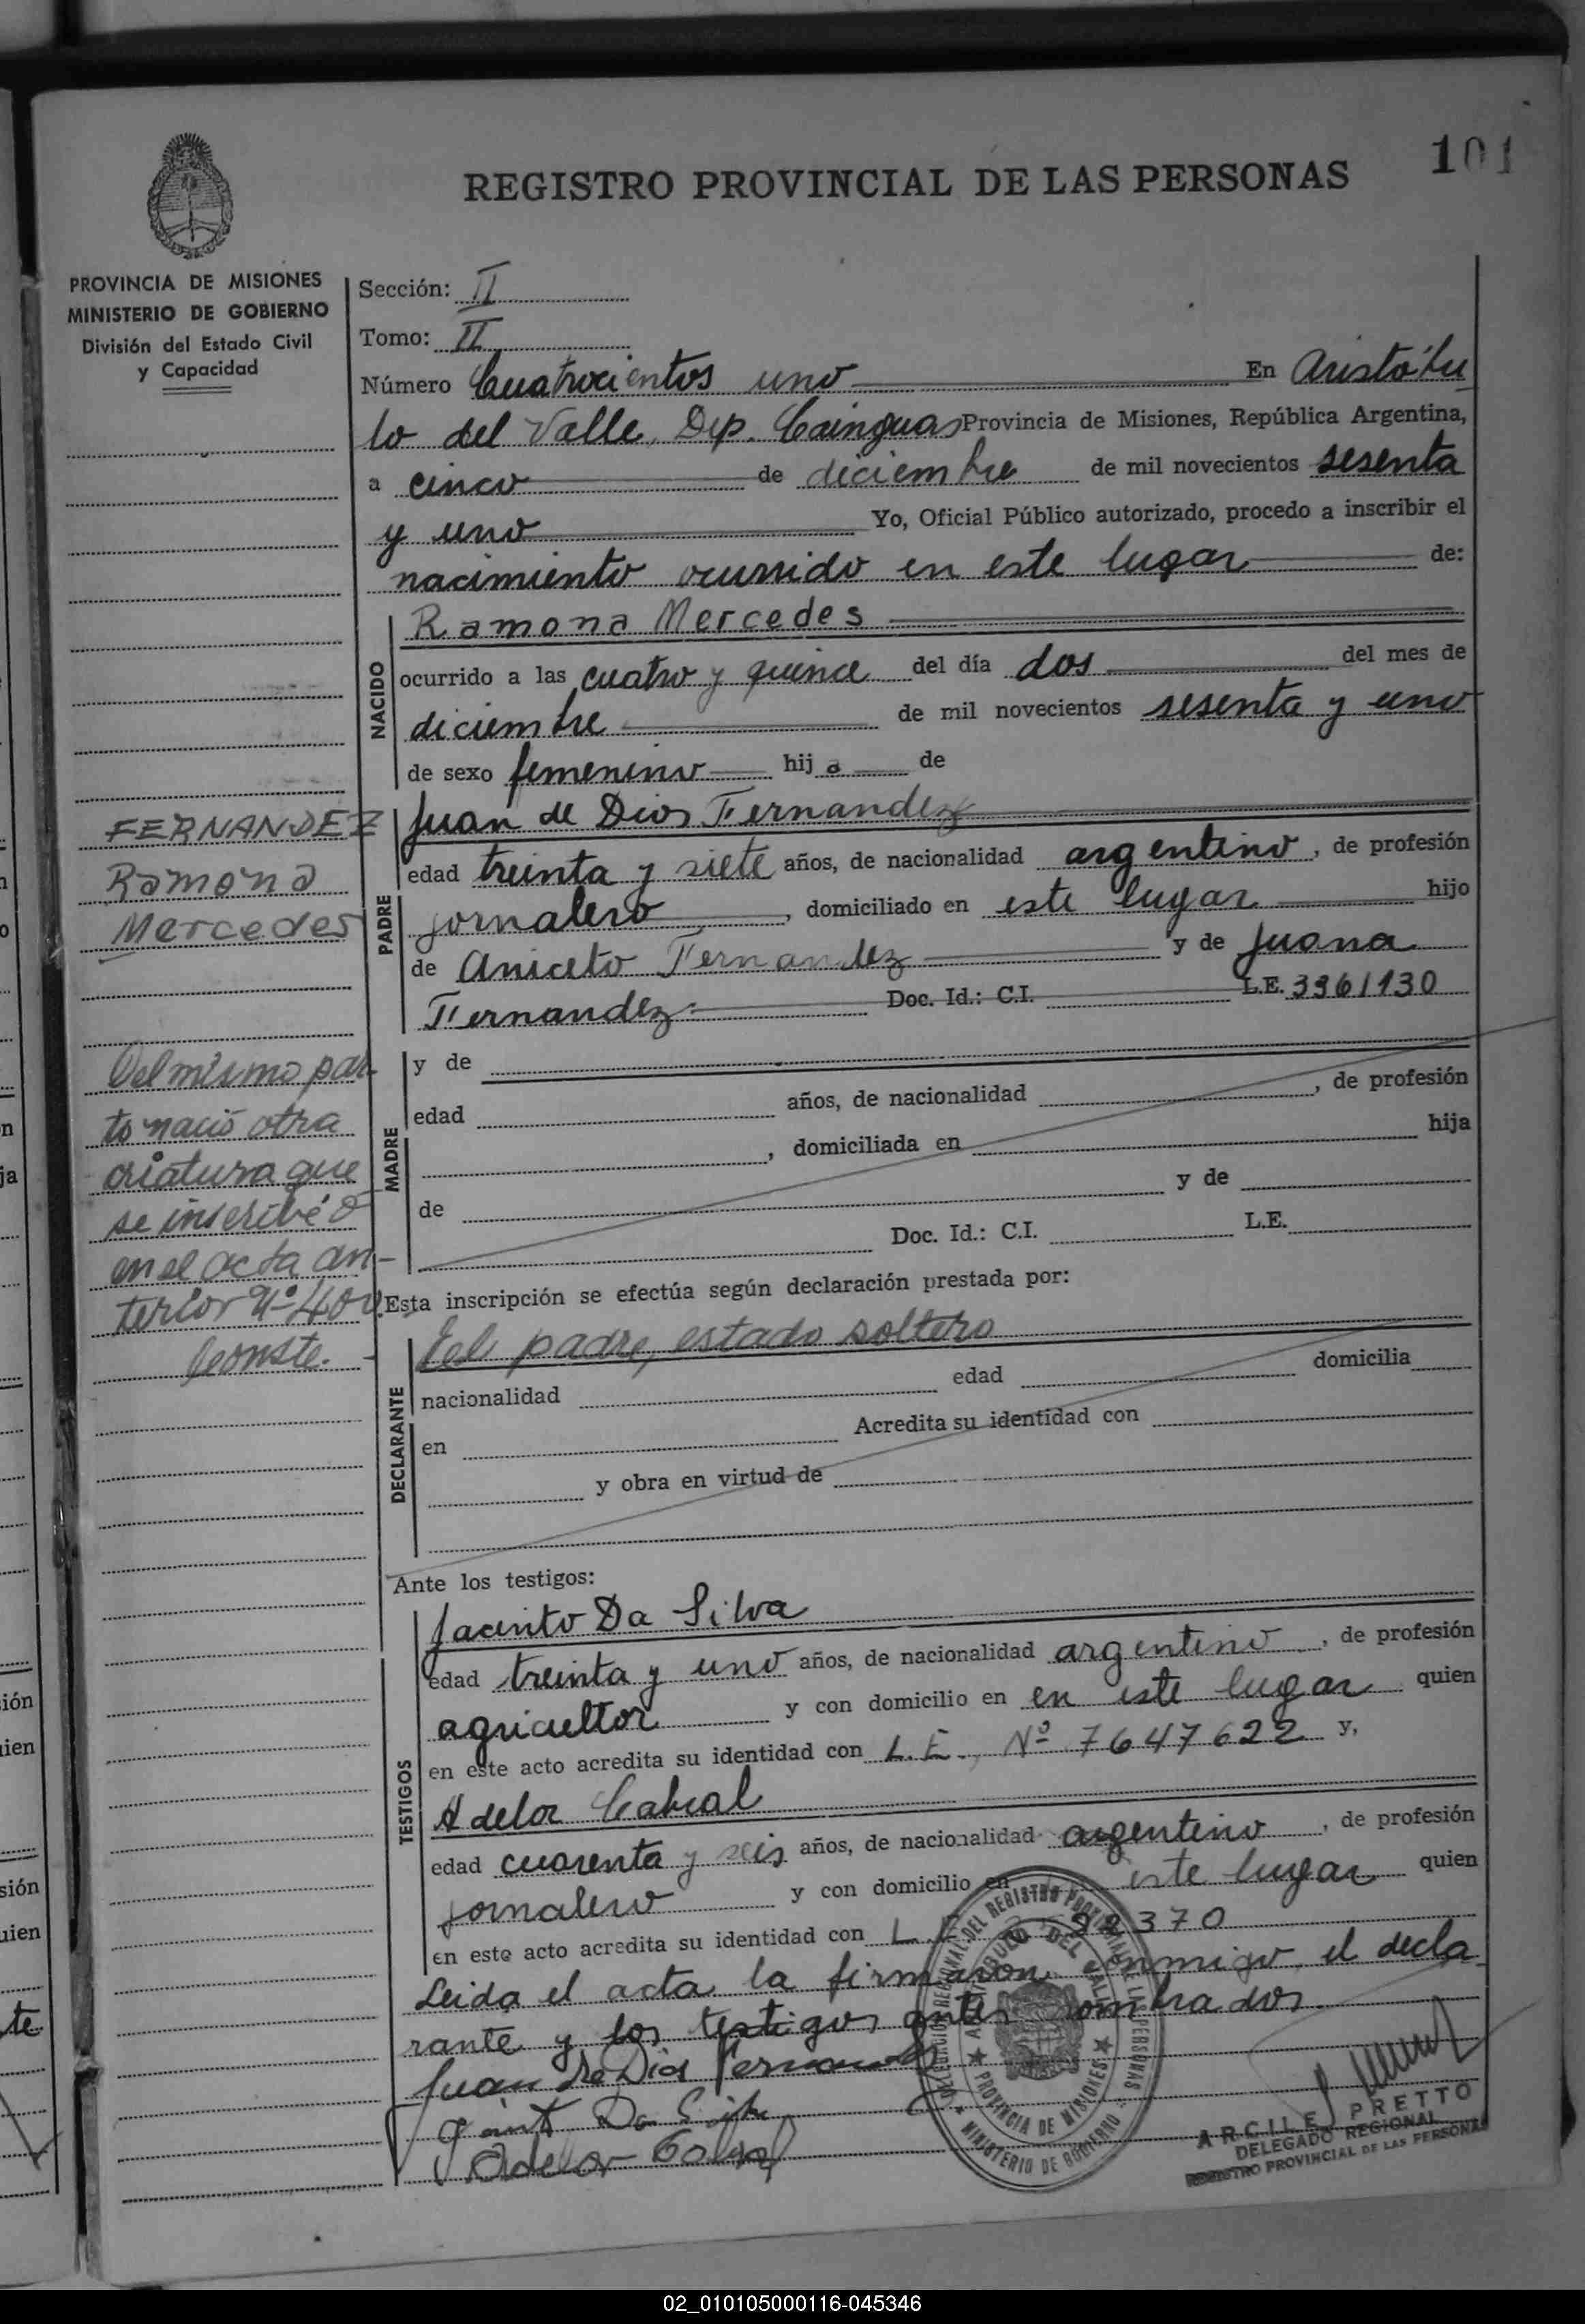 101
REGISTRO PROVINCIAL DE LAS PERSONAS
PROVINCIA DE MISIONES
MINISTERIO DE GOBIERNO
División del Estado Civil
y Capacidad
Sección: II
Tomo: II
Número Cuatrocientos uno En Aristóbu
lo del Valle, Dep. Cainguas Provincia de Misiones, República Argentina,
a cinco de diciembre de mil novecientos sesenta
y uno Yo, Oficial Público autorizado, procedo a inscribir el
nacimiento ocurrido en este lugar de:
NACIDO
Ramona Mercedes
ocurrido a las cuatro y quince del día dos del mes de
diciembre de mil novecientos sesenta y uno
de sexo femenino hij a de
FERNANDEZ
Ramona
Mercedes
PADRE
Juan de Dios Fernandez
edad treinta y siete años, de nacionalidad argentino, de profesión
jornalero, domiciliado en este lugar hijo
de Aniceto Fernandez y de Juana
Fernandez Doc. Id.: C.I. L.E. 3361130
Del mismo par
to nació otra
criatura que
se inscribió
en el acta an-
terior Nº 400.
Conste.
MADRE
y de
edad años, de nacionalidad , de profesión
, domiciliada en hija
de y de
Doc. Id.: C.I. L.E.
Esta inscripción se efectúa según declaración prestada por:
DECLARANTE
El padre, estado soltero
nacionalidad edad domicilia
en Acredita su identidad con
y obra en virtud de
Ante los testigos:
TESTIGOS
Jacinto Da Silva
edad treinta y uno años, de nacionalidad argentino, de profesión
agricultor y con domicilio en en este lugar quien
en este acto acredita su identidad con L.E. Nº 7647622 y,
Adelor Cabral
edad cuarenta y seis años, de nacionalidad argentino, de profesión
jornalero y con domicilio en este lugar quien
en este acto acredita su identidad con L.E. 22370
Leida el acta la firmaron conmigo, el decla
rante y los testigos antes nombrados.
Juan de Dios Fernandez
Da Silva
Adelor Cabral
DELEGACION REGIONAL DEL REGISTRO PROVINCIAL DE LAS PERSONAS
ARISTOBULO DEL VALLE
PROVINCIA DE MISIONES
MINISTERIO DE GOBIERNO
ARCILE PRETTO
DELEGADO REGIONAL
REGISTRO PROVINCIAL DE LAS PERSONAS
02_010105000116-045346